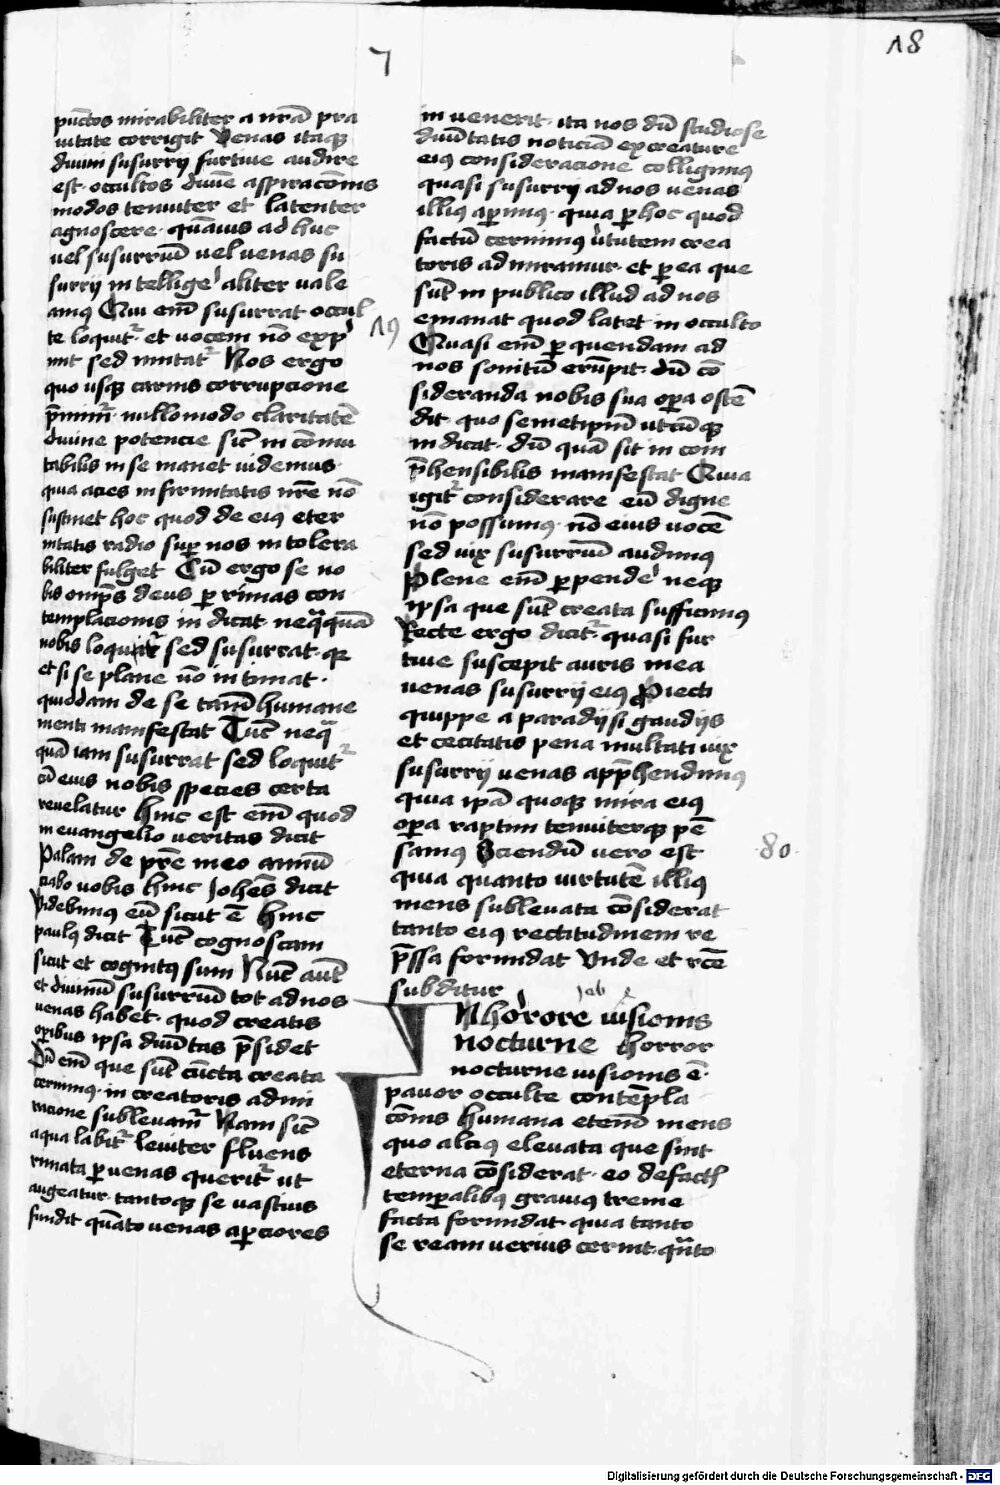 7
18
pūctos mirabiliter a nrā pra
uitate corrigit Venas itaqꝫ
diuini susurrij furtiue audire
est occultos diuīe aspiracōnis
modos tenuiter et latenter
agnoscere · quāuis ad huc
uel susurrīū uel venas su
surrij in tellige' aliter uale
amꝰ Qui eīm susurrat occul
te loquit᷑ · et vocem nō exp'
mit sed imitat᷑ Nos ergo
quo usqꝫ carnis corrupcione
p̄mim᷑ · nullomodo claritatē
diuine potencie sic̄ in cōmu
tabilis in se manet uidemus ·
quia acies infirmitatis nr̄e nō
sustinet hoc quod de eiꝰ eter
nitatis radio suꝑ nos in tolera
biliter fulget Cū ergo se no
bis omp̄s deus ꝑ rimas con
templacionis in dicat · neq̄quā
nobis loquit᷑ sed susurrat · qꝫ
et si se plane nō in timat ·
quiddam de se tamē humane
menti manifestat Tūc neq̄
quā iam susurrat sed loquit᷑
cū eius nobis species certa
reuelatur hinc est eīm quod
in euangelio veritas dicit
Palam de pr̄e meo annū
ciabo uobis hinc Johēs dicit
Videbimꝰ eū sicut ē hinc
paulꝰ dicit Tūc cognoscam
sicut et cognitꝰ sum Nūc autē
et diuinū susurrīū tot ad nos
venas habet · quod creatis
oꝑibus ipsa diuītas p̄sidet
Dū eīm que sūt cūcta creata
cernimꝰ · in creatoris admi
racione subleuam᷑ Nam sic̄
aqua labit᷑ leuiter fluens
rimata ꝑ venas querit᷑ ut
augeatur · tantoqꝫ se vastius
fundit quāto venas aꝑciores
19
inuenerit · ita nos dū studiose
diuītatis noticiā ex creature
eiꝰ consideracione colligimꝰ
quasi susurrij ad nos venas
illiꝰ aꝑimꝰ · quia ꝑ hoc quod
factū cernimꝰ v'tutem crea
toris ad miramur · et ꝑ ea que
sūt in publico illud ad nos
emanat quod latet in occulto
Quasi eīm ꝑ quendam ad
nos sonitū erūpit · dū cō
sideranda nobis sua oꝑa ostē
dit · quo semetipm̄ utcūqꝫ
in dicat · dū quā sit in com
p̄hensibilis manifestat Quia
igit᷑ considerare eū digne
nō possumꝰ · nō eius vocē
sed uix susurrīū audimꝰ
Plene eīm ꝑpende' neqꝫ
ipsa que sūt creata sufficimꝰ
Recte ergo dicit᷑ · quasi fur
tiue suscepit auris mea
venas susurrij eiꝰ Proiecti
quippe a paradijsi gaudijs
et cecitatis pena multati uix
susurrij venas app̄hendimꝰ
quia ipā quoqꝫ mira eiꝰ
oꝑa raptim tenuiterqꝫ pē
samꝰ Sciendū vero est
80
quia quanto uirtutē illiꝰ
mens subleuata cōsiderat
tanto eiꝰ rectitudinem re
p̄ssa formidat Vnde et rc̄e
subditur
Job
IN horrore uisionis
nocturne horror
nocturne uisionis ē ·
pauor occulte contēpla
cōnis humana etenī mens
quo alciꝰ eleuata que sint
eterna cōsiderat · eo de fact'
temꝑalibꝰ grauiꝰ treme
facta formidat · quia tanto
se ream verius cernit · qn̄to
Digitalisierung gefördert durch die Deutsche Forschungsgemeinschaft - DFG